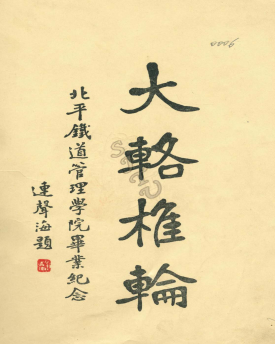 大輅椎輪
北平鐵道管理學院畢業紀念
連聲海題